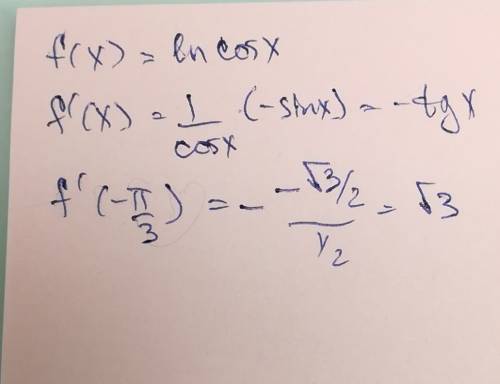 f(x) = ln cosx
f'(x) = 1/cosx (-sinx) = -tg x
f'(-π/3) = - -√3/2 / 1/2 = √3